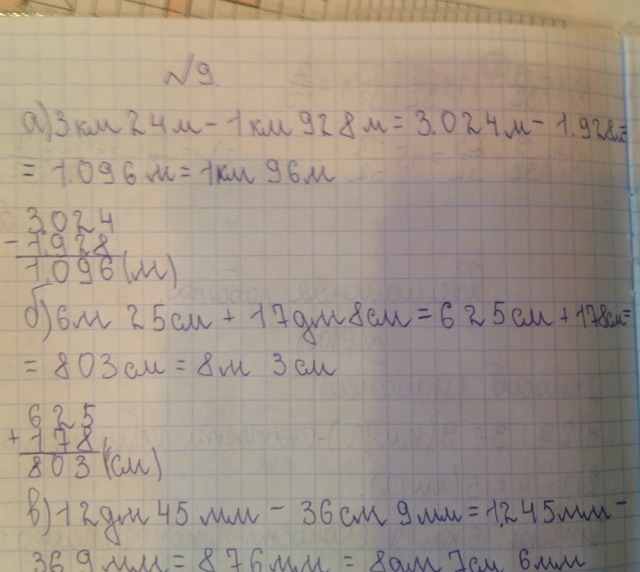 №9
а) 3 км 24 м - 1 км 928 м = 3.024 м - 1.928м=
= 1.096 м = 1 км 96 м
3.024
- 1.928
1.096 (м)
б) 6 м 25 см + 17 дм 8 см = 625 см + 178 см =
= 803 см = 8 м 3 см
625
+ 178
803 (см)
в) 12 дм 45 мм - 36 см 9 мм = 1,245 мм -
369 мм = 876 мм = 8 дм 7 см 6 мм